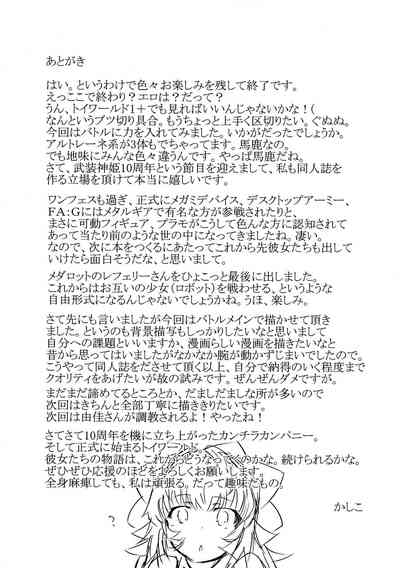 あとがき
はい。というわけで色々お楽しみを残して終了です。
えっここで終わり？エロは？だって？
うん、トイワールド1＋でも見ればいいんじゃないかな！(
なんというブツ切り具合。もうちょっと上手く区切りたい。ぐぬぬ。
今回はバトルに力を入れてみました。いかがだったでしょうか。
アルトレーネ系が3体もでちゃってます。馬鹿なの。
でも地味にみんな色々違うんです。やっぱ馬鹿だね。
さて、武装神姫10周年という節目を迎えまして、私も同人誌を
作る立場を頂けて本当に嬉しいです。
ワンフェスも過ぎ、正式にメガミデバイス、デスクトップアーミー、
FA:Gにはメタルギアで有名な方が参戦されたりと、
まさに可動フィギュア、プラモがこうして色んな方に認知されて
あって当たり前のような世の中になってきましたね。凄い。
なので、次に本をつくるにあたってこれから先彼女たちも出して
いけたら面白そうだな、と思いまして。
メダロットのレフェリーさんをひょこっと最後に出しました。
これからはお互いの少女(ロボット)を戦わせる、というような
自由形式になるんじゃないでしょうかね。うほ、楽しみ。
さて先にも言いましたが今回はバトルメインで描かせて頂き
ました。というのも背景描写もしっかりしたいなと思いまして
自分への課題といいますか、漫画らしい漫画を描きたいなと
昔から思ってはいましたがなかなか腕が動かずじまいでしたので。
こうやって同人誌をださせて頂く以上、自分で納得のいく程度まで
クオリティをあげたいが故の試みです。ぜんぜんダメですが。
まだまだ諦めてるところとか、だましだましな所が多いので
次回はきちんと全部丁寧に描ききりたいです。
次回は由佳さんが調教されるよ！やったね！
さてさて10周年を機に立ち上がったカンチラカンパニー。
そして正式に始まるトイワールド。
彼女たちの物語は、これからどうなっていくのかな。続けられるかな。
ぜひぜひ応援のほどをよろしくお願いします。
全身麻痺しても、私は頑張る。だって趣味だもの。
かしこ
？